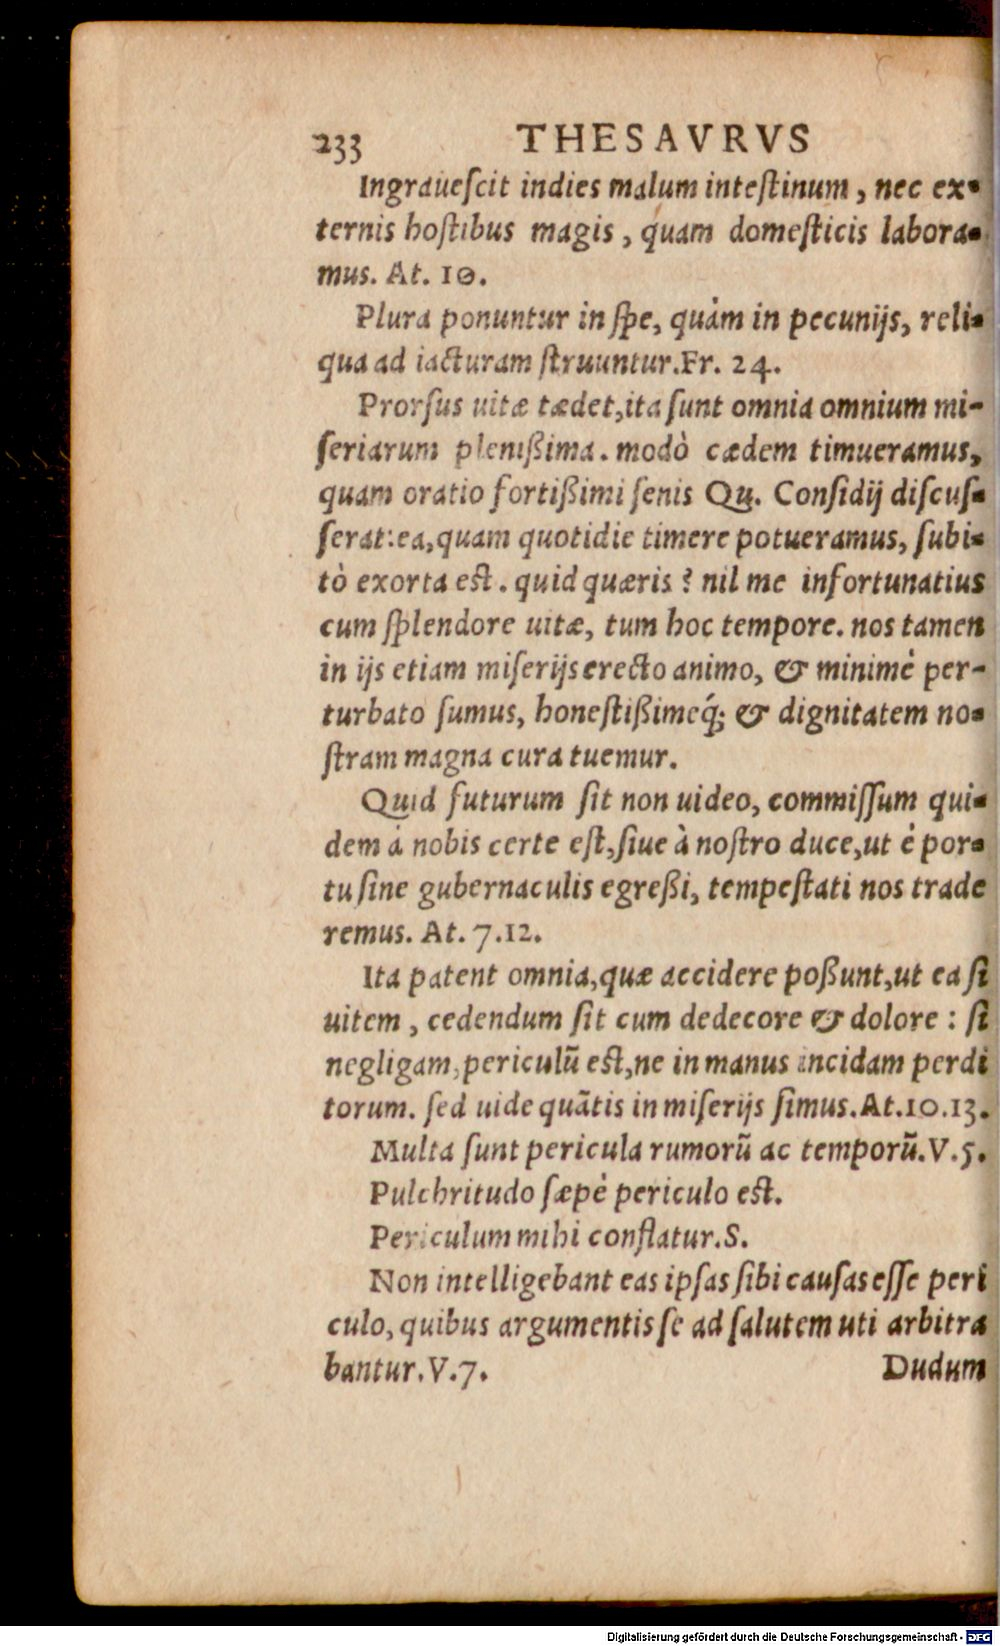 233 THESAVRVS
Ingraueſcit indies malum inteſtinum, nec ex-
ternis hoſtibus magis, quam domeſticis labora-
mus. At. 10.
Plura ponuntur in ſpe, quàm in pecunijs, reli-
qua ad iacturam ſtruuntur. Fr. 24.
Prorſus uitæ tædet, ita ſunt omnia omnium mi-
ſeriarum pleniſſima. modò cædem timueramus,
quam oratio fortiſſimi ſenis Qu. Conſidij diſcuſ-
ſerat: ea, quam quotidie timere potueramus, ſubi-
tò exorta eſt. quid quæris? nil me infortunatius
cum ſplendore uitæ, tum hoc tempore. nos tamen
in ijs etiam miſerijs erecto animo, & minimè per-
turbato ſumus, honeſtißimeq́; & dignitatem no-
ſtram magna cura tuemur.
Quid futurum ſit non uideo, commiſſum qui-
dem à nobis certe eſt, ſiue à noſtro duce, ut è por-
tu ſine gubernaculis egreßi, tempeſtati nos trade
remus. At. 7.12.
Ita patent omnia, quæ accidere poßunt, ut ea ſi
uitem, cedendum ſit cum dedecore & dolore: ſi
negligam, periculũ eſt, ne in manus incidam perdi
torum. ſed uide quãtis in miſerijs ſimus. At. 10.13.
Multa ſunt pericula rumorũ ac temporũ. V. 5.
Pulchritudo ſæpè periculo eſt.
Periculum mihi conflatur. S.
Non intelligebant eas ipſas ſibi cauſas eſſe peri
culo, quibus argumentis ſe ad ſalutem uti arbitra
bantur. V. 7. Dudum
Digitalisierung gefördert durch die Deutsche Forschungsgemeinschaft - DFG